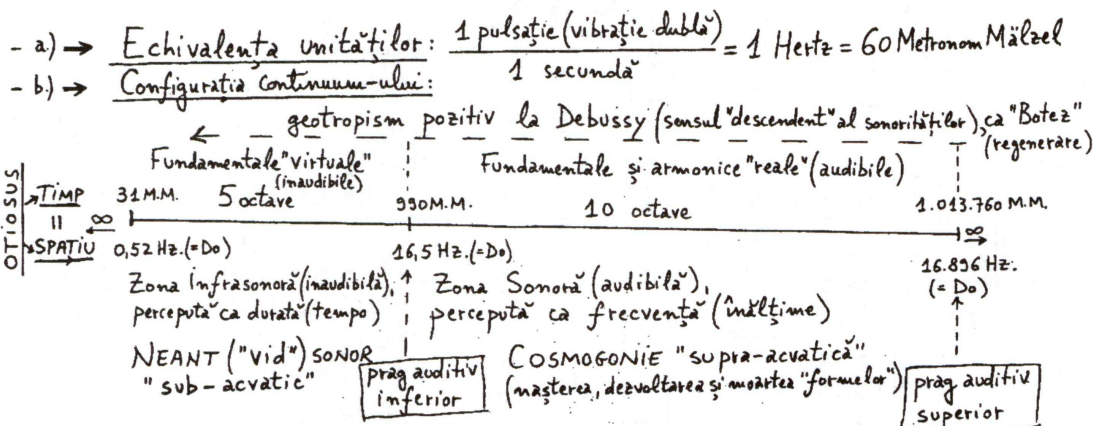 - a.) → Echivalența unităților: 1 pulsație (vibrație dublă) / 1 secundă = 1 Hertz = 60 Metronom Mälzel
- b.) → Configurația continuum-ului:
← geotropism pozitiv la Debussy (sensul "descendent" al sonorităților), ca "Botez" (regenerare)
Fundamentale "virtuale" (inaudibile) Fundamentale și armonice "reale" (audibile)
OTIOSUS
TIMP 31 M.M. 5 octave 990 M.M. 10 octave 1.013.760 M.M.
= ∞ ∞
SPAȚIU 0,52 Hz. (=Do) 16,5 Hz. (=Do) 16.896 Hz. (= Do)
Zona Infrasonoră (inaudibilă), Zona Sonoră (audibilă),
percepută ca durată (tempo) percepută ca frecvență (înălțime)
NEANT ("vid") SONOR COSMOGONIE "supra-acvatică"
"sub-acvatic" (nașterea, dezvoltarea și moartea "formelor")
prag auditiv inferior
prag auditiv superior